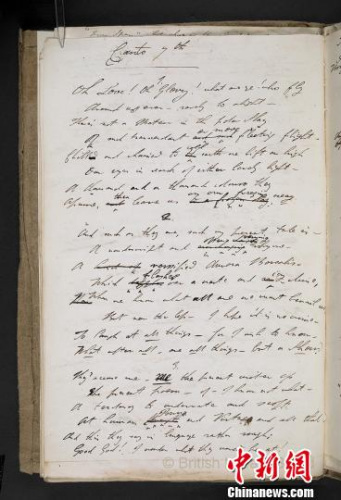 Canto 7th
Oh Love! Oh Glory! what are ye! who fly
Around us ever - rarely to alight -
There's not a Meteor in the polar Sky
Of such transcendent and more fleeting flight -
Chill and chained to cold earth we lift on high
Our eyes in search of either lovely light -
A thousand and a thousand colours they
Assume, then leave us on our freezing way
2.
And such as they are, such my present tale is -
A nondescript and ever varying rhyme -
A versified Aurora Borealis
Which flashes over a waste and icy clime,
When we know what all are we must bewail us
But ne'er the less - I hope it is no crime -
To laugh at all things - for I wish to know
What after all, are all things - but a Show?
3.
They accuse me - Me the present writer of
The present poem - of - I know not what -
A tendency to underrate and scoff
At human power and Virtue and all that
And this they say in language rather rough,
Good God! I wonder what they would be at!
© British
中新网
Chinanews.com